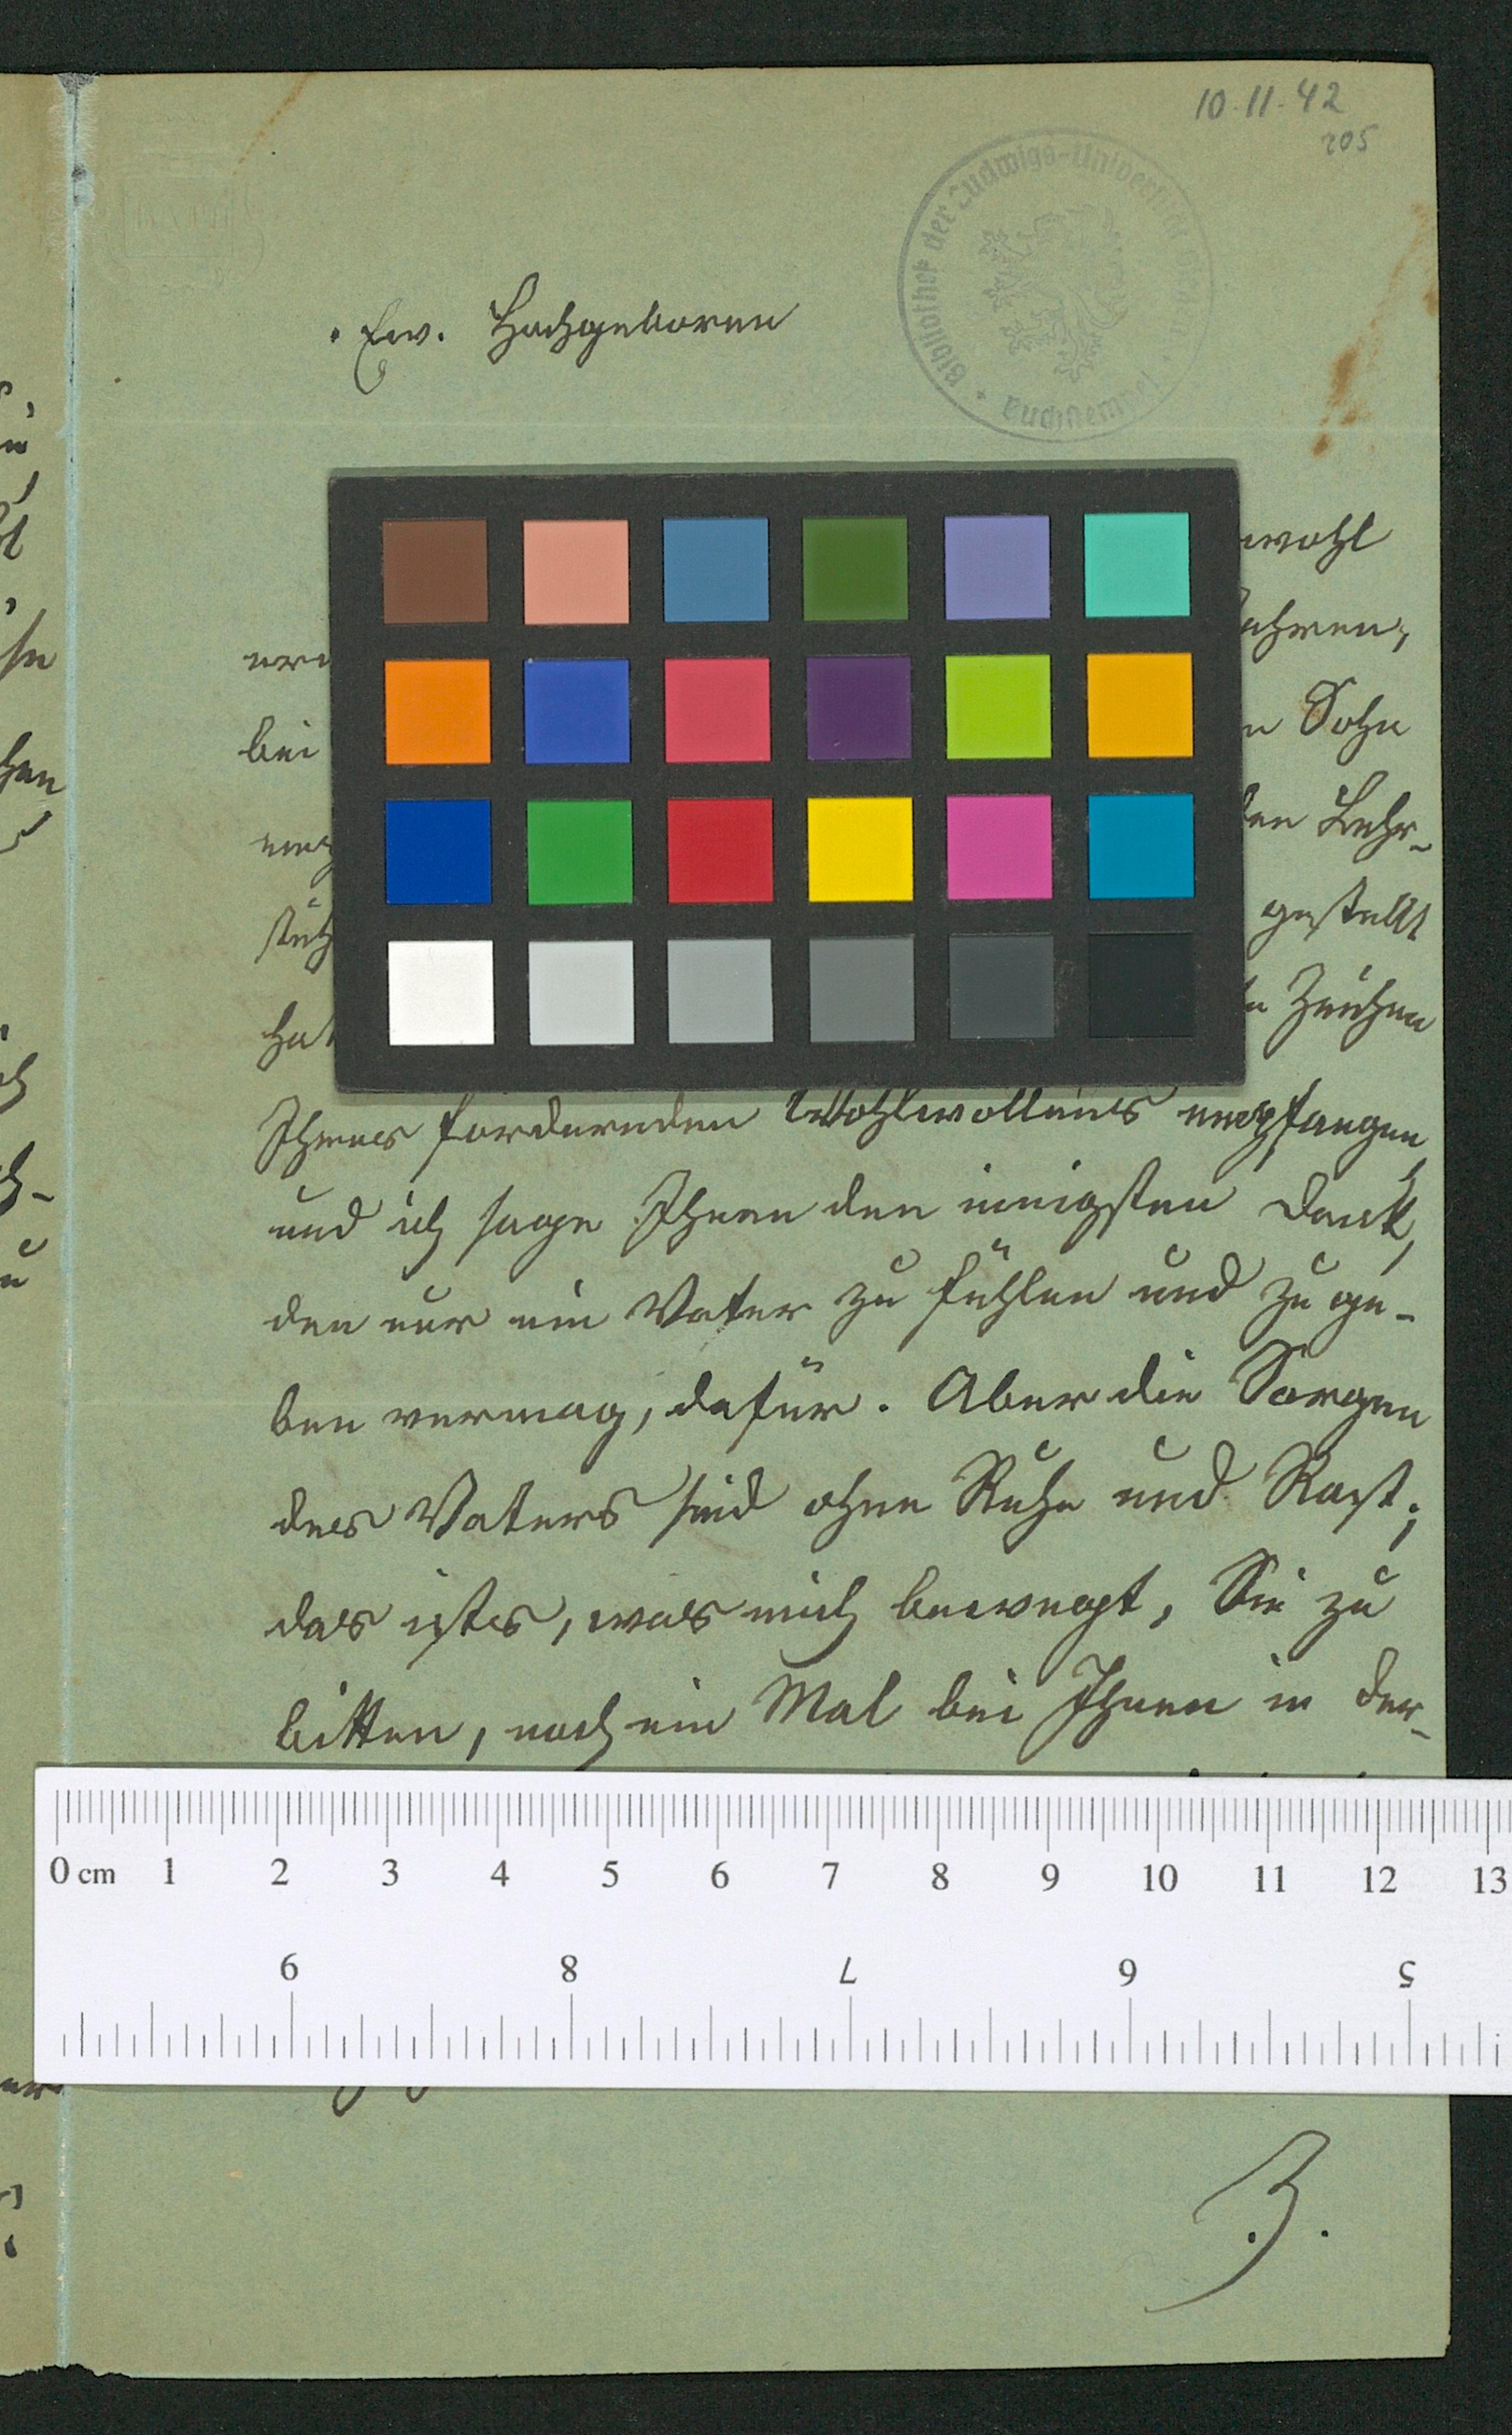 10.11.42
205
Bibliothek der Ludwigs-Universität
Ew. Hochgeboren
wohl
ahren,
bei
n Sohn
den Lehr-
stuh
gestellt
hat
Zeichen
Ihres fordernden Wohlwollens empfangen,
und ich sage Ihnen den innigsten Dank,
den nur ein Vater zu fühlen und zu ge-
ben vermag, dafür. Aber die Sorgen
des Vaters sind ohne Ruhe und Rast;
das ists, was mich bewegt, Sie zu
bitten, noch ein Mal bei Ihnen in der-
0 cm 1 2 3 4 5 6 7 8 9 10 11 12 13
9 8 7 6 5